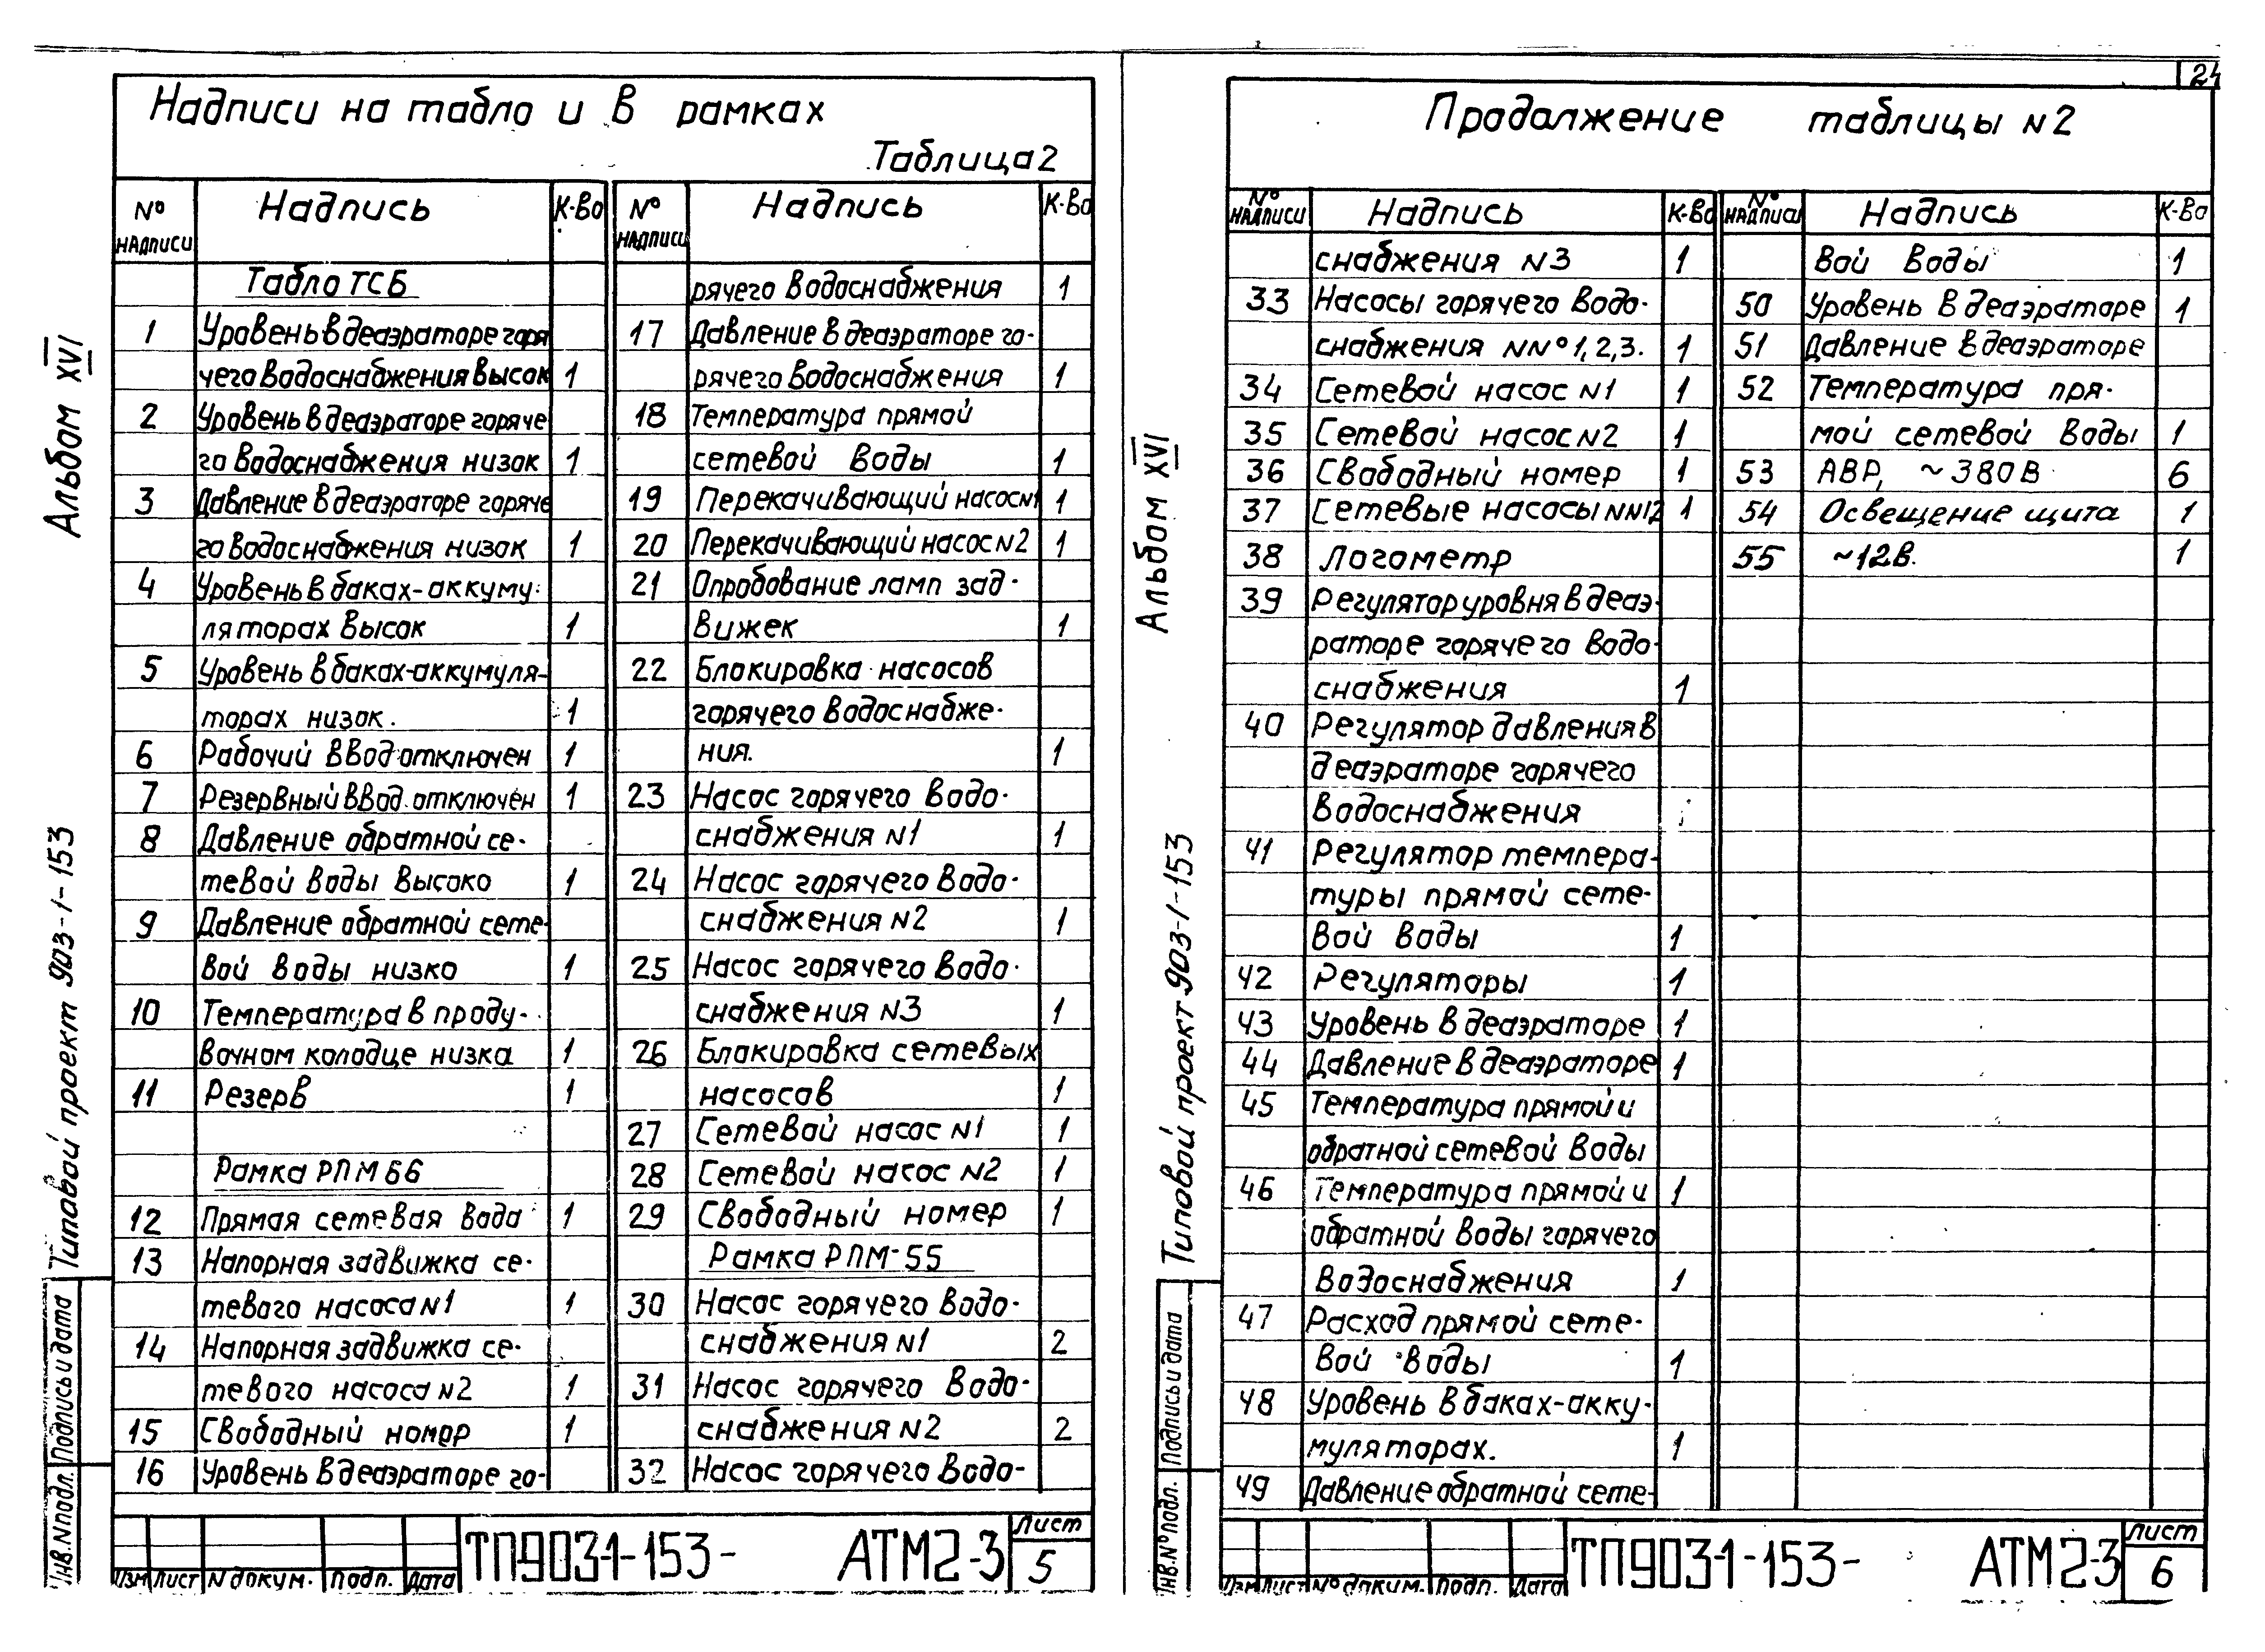 24
Надписи на табло и в рамках
Таблица 2
№ надписи Надпись К-во
Табло ТСБ
1 Уровень в деаэраторе горя
чего водоснабжения высок 1
2 Уровень в деаэраторе горяче
го водоснабжения низок 1
3 Давление в деаэраторе горяче
го водоснабжения низок 1
4 Уровень в баках-аккуму-
ляторах высок 1
5 Уровень в баках-аккумуля-
торах низок. 1
6 Рабочий ввод отключен 1
7 Резервный ввод отключен 1
8 Давление обратной се-
тевой воды высоко 1
9 Давление обратной сете-
вой воды низко 1
10 Температура в проду-
вочном колодце низка 1
11 Резерв 1
Рамка РПМ 66
12 Прямая сетевая вода 1
13 Напорная задвижка се-
тевого насоса N1 1
14 Напорная задвижка се-
тевого насоса N2 1
15 Свободный номер 1
16 Уровень в деаэраторе го-
№ надписи Надпись К-во
рячего водоснабжения 1
17 Давление в деаэраторе го-
рячего водоснабжения 1
18 Температура прямой
сетевой воды 1
19 Перекачивающий насос N1 1
20 Перекачивающий насос N2 1
21 Опробование ламп зад-
вижек 1
22 Блокировка насосов
горячего водоснабже-
ния. 1
23 Насос горячего водо-
снабжения N1 1
24 Насос горячего водо-
снабжения N2 1
25 Насос горячего водо-
снабжения N3 1
26 Блокировка сетевых
насосов 1
27 Сетевой насос N1 1
28 Сетевой насос N2 1
29 Свободный номер 1
Рамка РПМ-55
30 Насос горячего водо-
снабжения N1 2
31 Насос горячего водо-
снабжения N2 2
32 Насос горячего водо-
Изм Лист N докум. Подп. Дата
ТП903-1-153- АТМ2-3
Лист
5
Альбом XVI
Типовой проект 903-1-153
Подпись и дата
Инв. N подл.
Продолжение таблицы N2
№ надписи Надпись К-во
снабжения N3 1
33 Насосы горячего водо-
снабжения NN° 1,2,3. 1
34 Сетевой насос N1 1
35 Сетевой насос N2 1
36 Свободный номер 1
37 Сетевые насосы NN12 1
38 Логометр
39 Регулятор уровня в деаэ-
раторе горячего водо-
снабжения 1
40 Регулятор давления в
деаэраторе горячего
водоснабжения
41 Регулятор темпера-
туры прямой сете-
вой воды 1
42 Регуляторы 1
43 Уровень в деаэраторе 1
44 Давление в деаэраторе 1
45 Температура прямой и
обратной сетевой воды
46 Температура прямой и 1
обратной воды горячего
водоснабжения 1
47 Расход прямой сете-
вой воды 1
48 Уровень в баках-акку-
муляторах. 1
49 Давление обратной сете-
№ надписи Надпись К-во
вой воды 1
50 Уровень в деаэраторе 1
51 Давление в деаэраторе
52 Температура пря-
мой сетевой воды 1
53 АВР, ~380В 6
54 Освещение щита 1
55 ~12в. 1
Изм Лист № докум. Подп. Дата
ТП903-1-153- АТМ2-3
Лист
6
Альбом XVI
Типовой проект 903-1-153
Подпись и дата
Инв. N° подл.